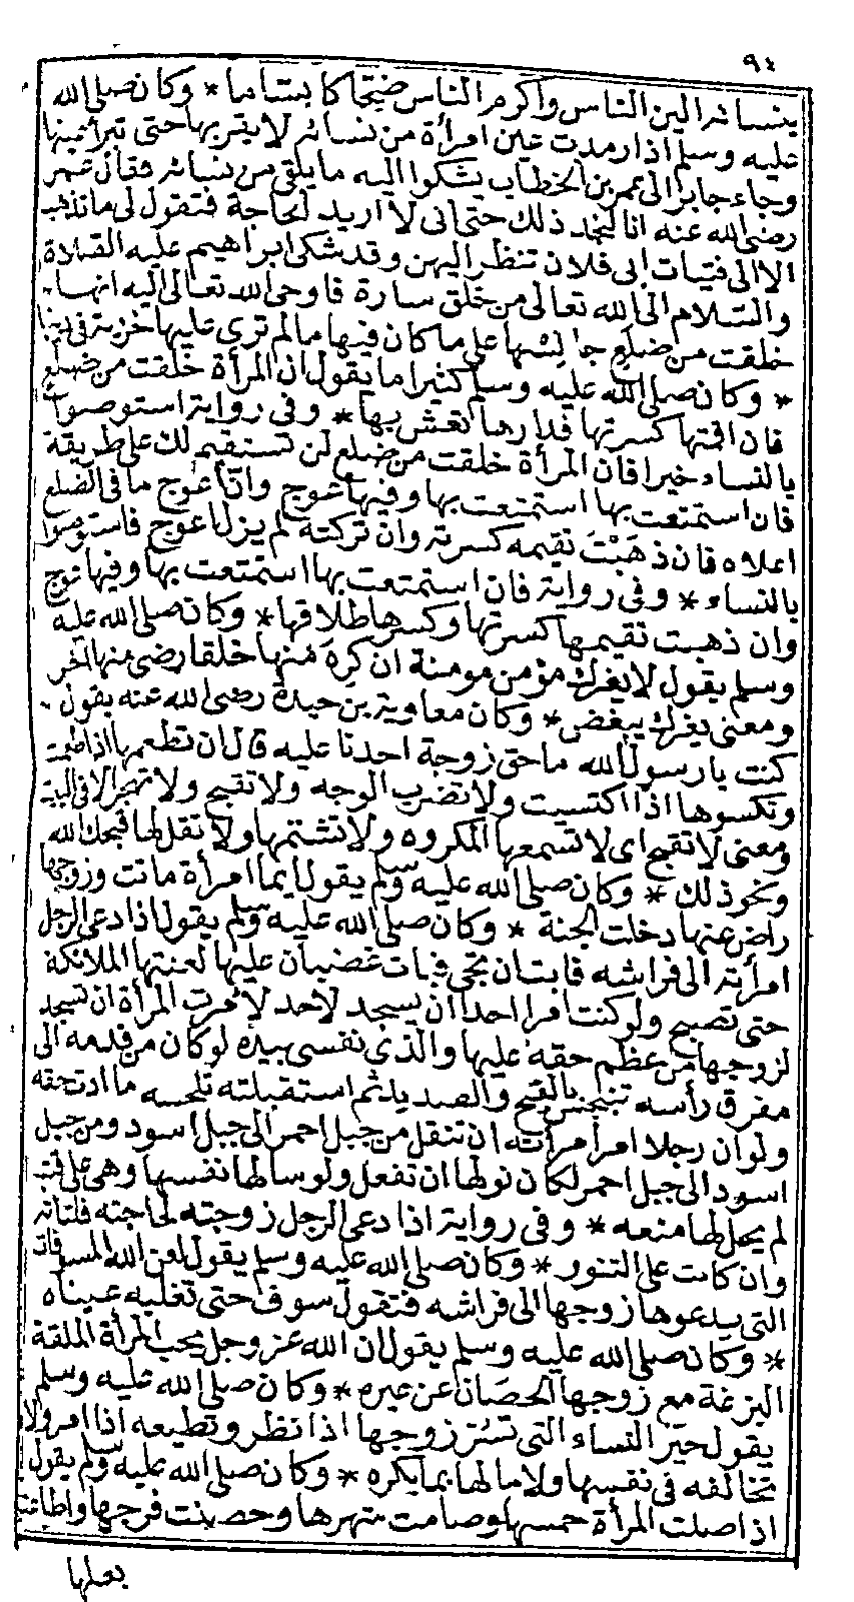 ٩٤
بنسائه الين الناس واكرم الناس ضحاكا بساما * وكان صلى الله
عليه وسلم اذا رمدت عين امرأة من نسائه لا يقربها حتى تبرأ عينها
وجاء جابر الى عمر بن الخطاب يشكوا اليه ما يلقى من نسائه فقال عمر
رضى الله عنه انا لنجد ذلك حتى انى لا اريد لحاجة فتقول لى ما تذهب
الا الى فتيات بنى فلان تنظر اليهن وقد شكى ابراهيم عليه الصلاة
والسلام الى الله تعالى من خلق سارة فاوحى الله تعالى اليه انها
خلقت من ضلع جا لبسها على ما كان فيها ما لم ترى عليها خزية فى دينها
* وكان صلى الله عليه وسلم كثيرا ما يقول ان المرأة خلقت من ضلع
فان اقمتها كسرتها فدارها تعش بها * وفى رواية استوصوا
بالنساء خيرا فان المرأة خلقت من ضلع لن تستقيم لك على طريقة
فان استمتعت بها استمتعت بها وفيها عوج وان اعوج ما فى الضلع
اعلاه فان ذهبت تقيمه كسرته وان تركته لم يزل اعوج فاستوصوا
بالنساء * وفى رواية فان استمتعت بها استمتعت بها وفيها عوج
وان ذهبت تقيمها كسرتها وكسرها طلاقها * وكان صلى الله عليه
وسلم يقول لا يفرك مؤمن مومنة ان كره منها خلقا رضى منها اخر
ومعنى يفرك يبغض * وكان معاوية بن حيدة رضى الله عنه يقول
كنت يا رسول الله ما حق زوجة احدنا عليه قال ان تطعمها اذا طعمت
وتكسوها اذا اكتسيت ولا تضرب الوجه ولا تقبح ولا تهجر الا فى البيت
ومعنى لا تقبح اى لا تسمعها المكروه ولا تشتمها ولا تقل لها قبحك الله
ونحو ذلك * وكان صلى الله عليه وسلم يقول ايما امرأة ماتت وزوجها
راض عنها دخلت الجنة * وكان صلى الله عليه وسلم يقول اذا دعى الرجل
امرأته الى فراشه فابت ان تجى فبات غضبان عليها لعنتها الملائكة
حتى تصبح ولو كنت امرا احدا ان يسجد لاحد لامرت المرأة ان تسجد
لزوجها من عظم حقه عليها والذى نفسى بيده لو كان من قدمه الى
مفرق رأسه تنبجس بالقيح والصديد ثم استقبلته تلحسه ما ادت حقه
ولو ان رجلا امر امرأته ان تنقل من جبل احمر الى جبل اسود ومن جبل
اسود الى جبل احمر لكان نولها ان تفعل ولو سالها نفسها وهى على قتب
لم يحل لها منعه * وفى رواية اذا دعى الرجل زوجته لحاجته فلتاته
وان كانت على التنور * وكان صلى الله عليه وسلم يقول لعن الله المسوفات
التى يدعوها زوجها الى فراشه فتقول سوف حتى تغلبه عيناه
* وكان صلى الله عليه وسلم يقول ان الله عز وجل يحب المرأة الملقة
البزعة مع زوجها الحصان عن غيره * وكان صلى الله عليه وسلم
يقول خير النساء التى تسر زوجها اذا نظر وتطيعه اذا امر ولا
تخالفه فى نفسها ولا مالها بما يكره * وكان صلى الله عليه وسلم يقول
اذا صلت المرأة خمسها وصامت شهرها وحصنت فرجها واطاعت
بعلها